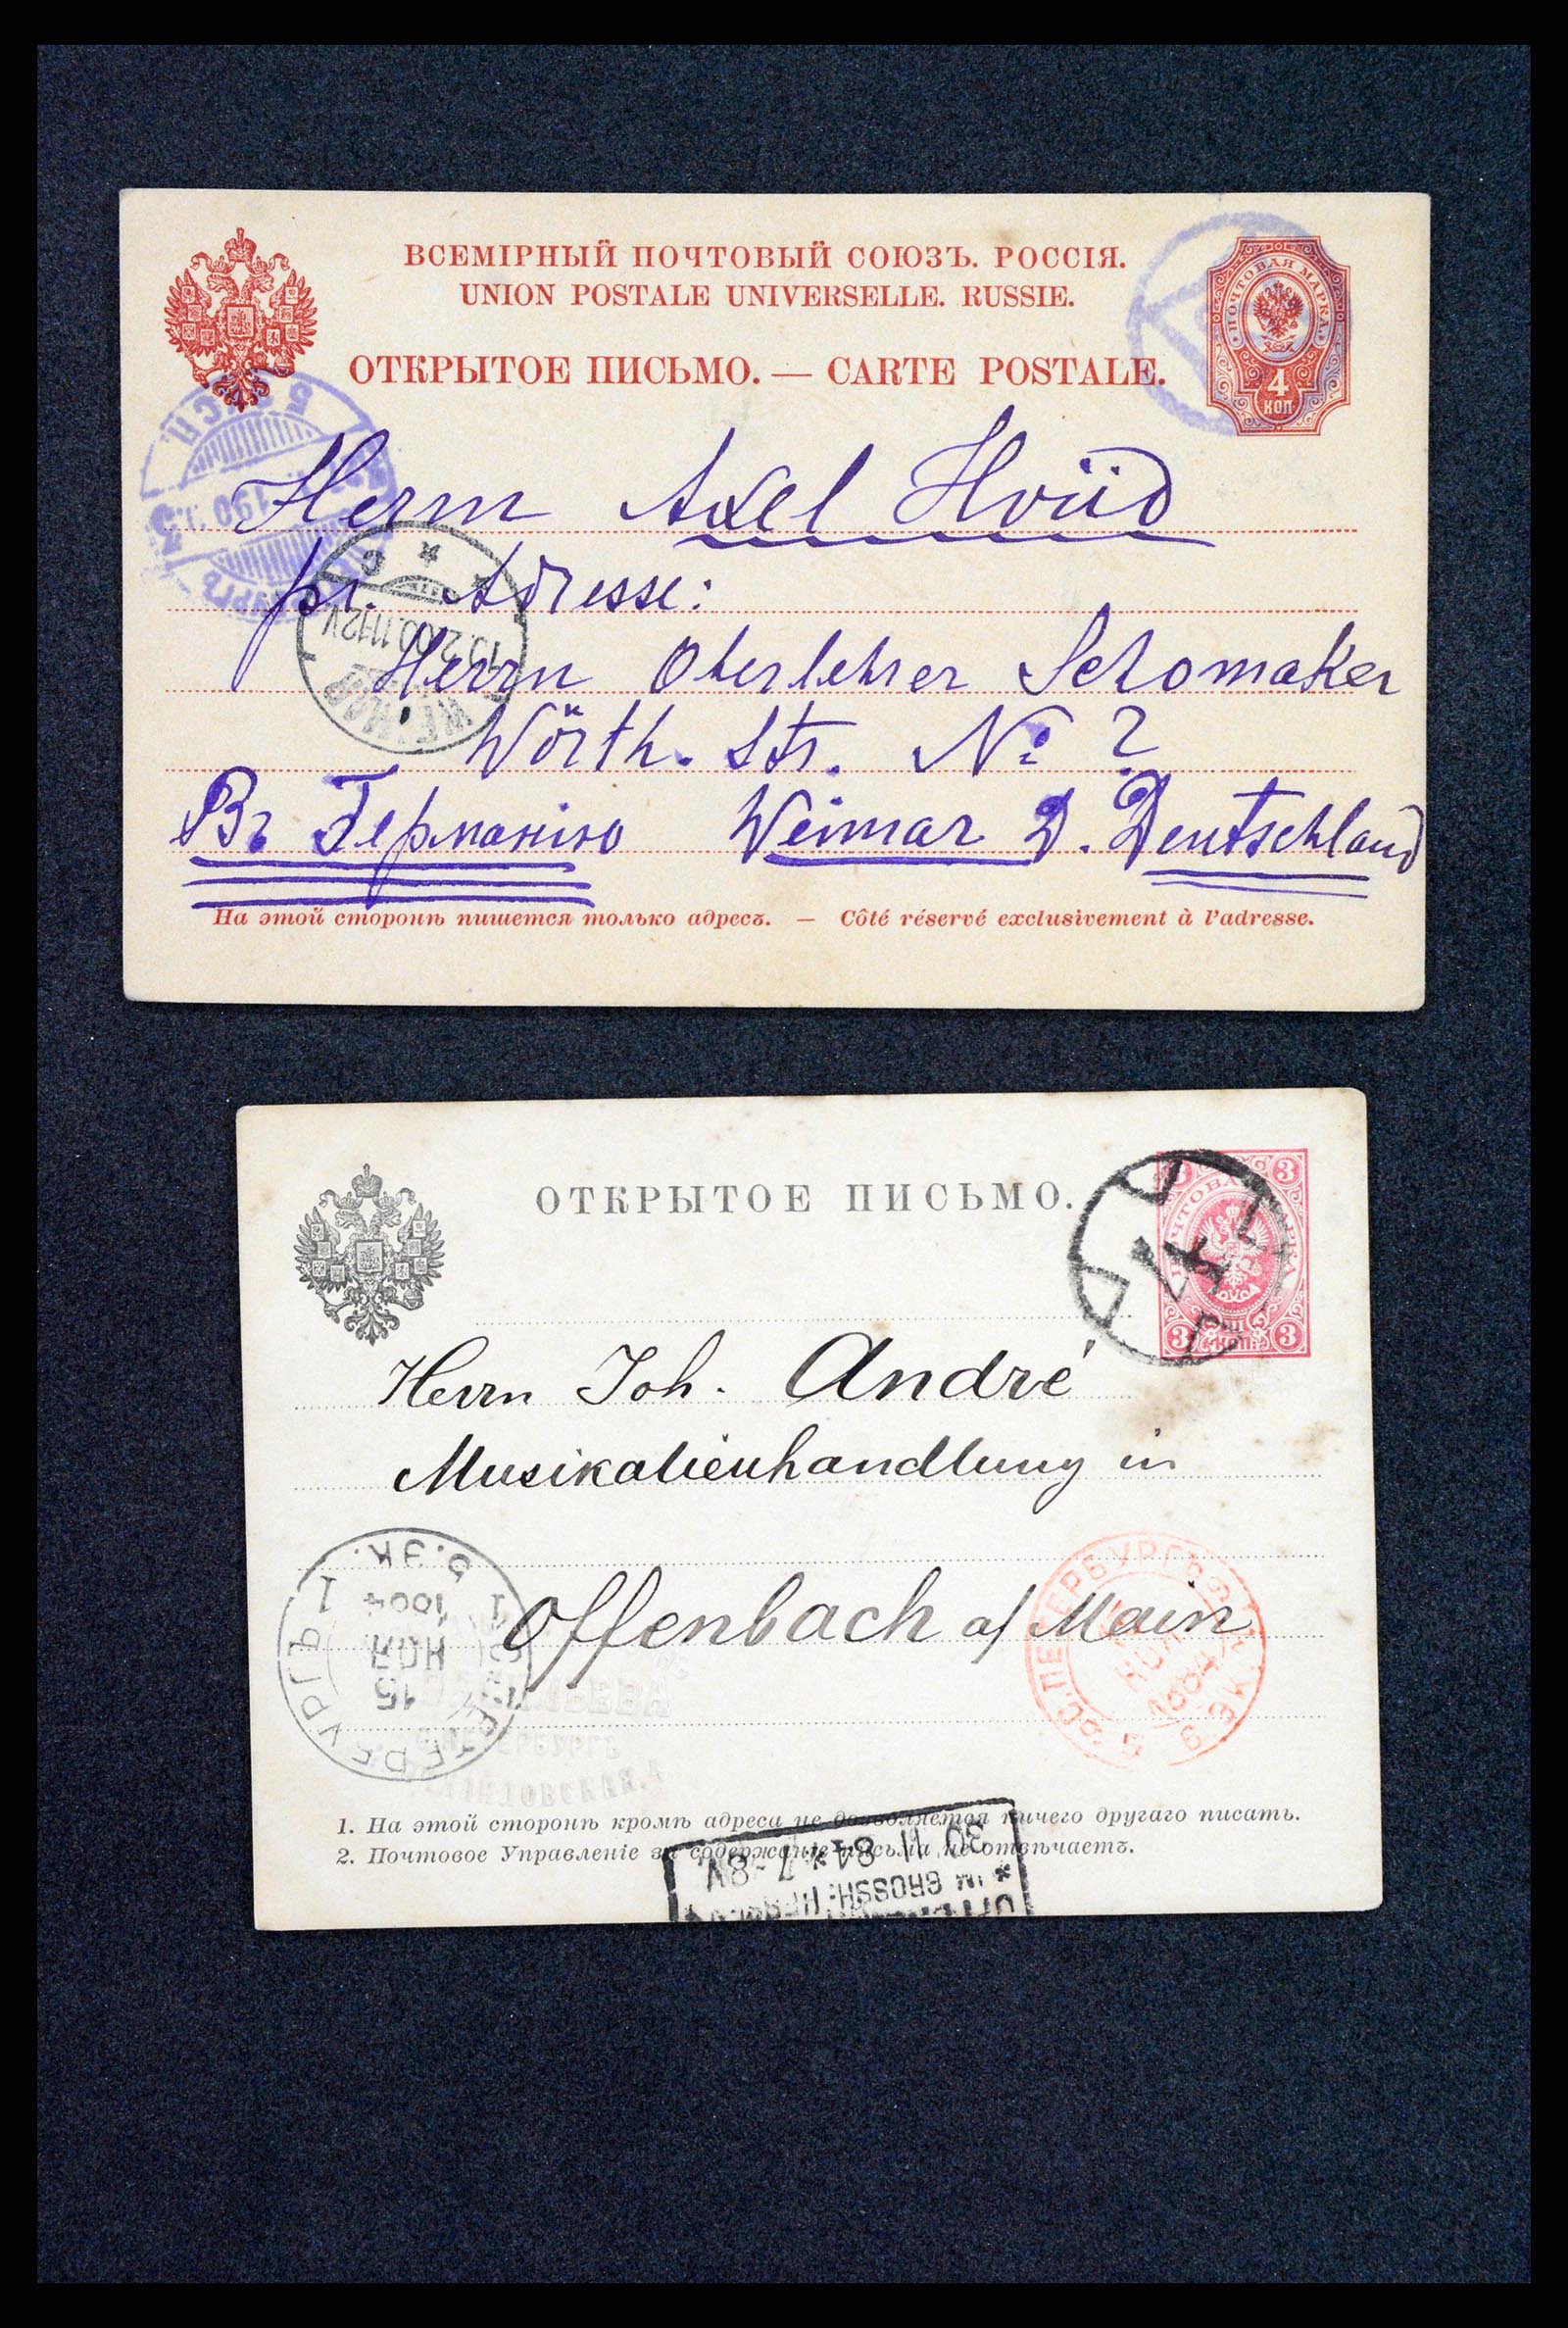 ВСЕМІРНЫЙ ПОЧТОВЫЙ СОЮЗЪ. РОССІЯ.
UNION POSTALE UNIVERSELLE. RUSSIE.
ОТКРЫТОЕ ПИСЬМО. — CARTE POSTALE.
ПОЧТОВАЯ МАРКА.
4
КОП.
Herrn Axel Hviid
pr. Adresse:
Herrn Oberlehrer Schomaker
Wörth. Str. No 2
Въ Германію Weimar D. Deutschland
На этой сторонѣ пишется только адресъ. — Côté réservé exclusivement à l'adresse.
ОТКРЫТОЕ ПИСЬМО.
3 3
3 КОП. 3
Herrn Joh. André
Musikalienhandlung in
Offenbach a/ Main
15
НОЯ
1884
1 1
30 11 84 * 7-8V
1. На этой сторонѣ кромѣ адреса не дозволяется ничего другаго писать.
2. Почтовое Управленіе за содержаніе письма не отвѣчаетъ.